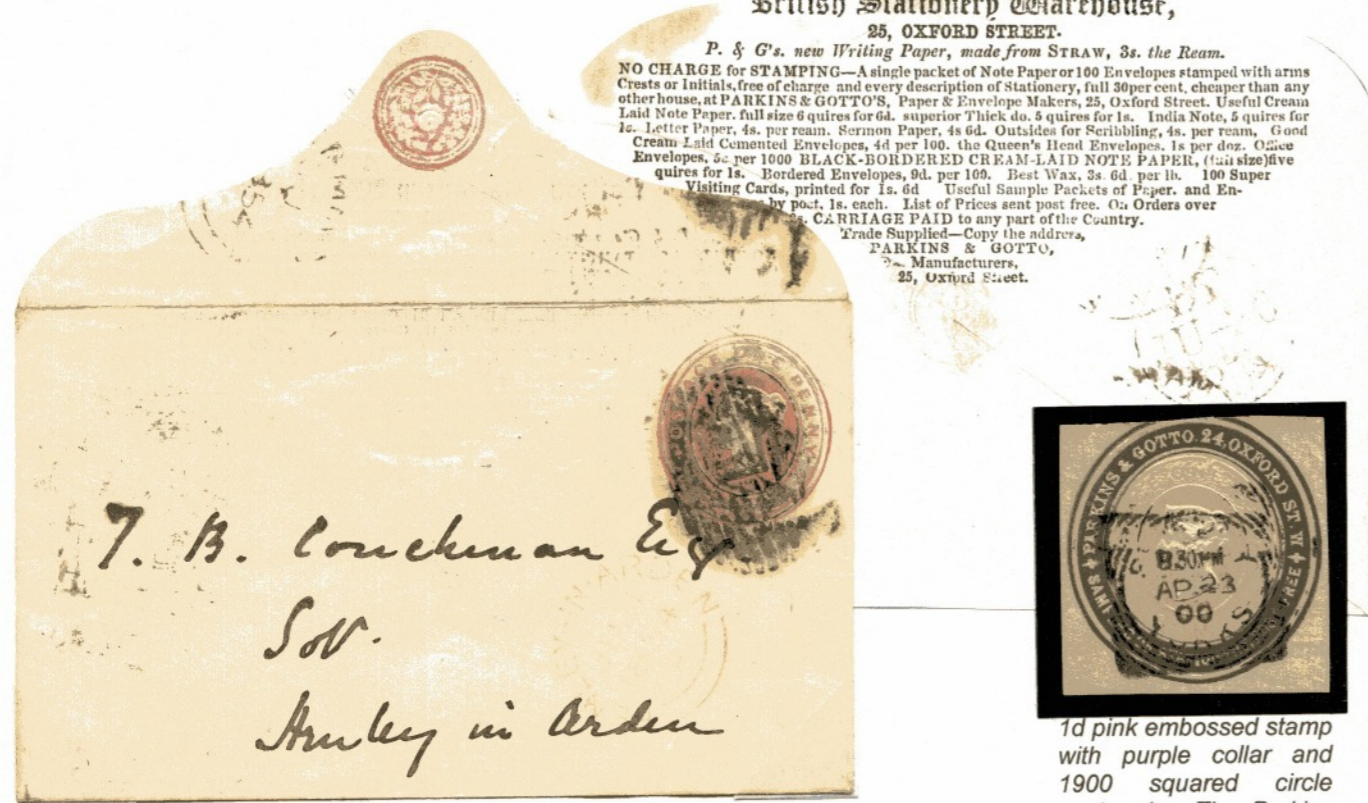 British Stationery Warehouse,
25, OXFORD STREET.
P. & G's. new Writing Paper, made from STRAW, 3s. the Ream.
NO CHARGE for STAMPING—A single packet of Note Paper or 100 Envelopes stamped with arms
Crests or Initials, free of charge and every description of Stationery, full 30per cent. cheaper than any
other house, at PARKINS & GOTTO'S, Paper & Envelope Makers, 25, Oxford Street. Useful Cream
Laid Note Paper. full size 6 quires for 6d. superior Thick do. 5 quires for 1s. India Note, 5 quires for
1s. Letter Paper, 4s. per ream. Sermon Paper, 4s 6d. Outsides for Scribbling, 4s. per ream, Good
Cream Laid Cemented Envelopes, 4d per 100. the Queen's Head Envelopes. 1s per doz. Office
Envelopes, 5s per 1000 BLACK-BORDERED CREAM-LAID NOTE PAPER, (full size) five
quires for 1s. Bordered Envelopes, 9d. per 100. Best Wax, 3s. 6d. per lb. 100 Super
Visiting Cards, printed for 1s. 6d Useful Sample Packets of Paper. and En-
by post, 1s. each. List of Prices sent post free. On Orders over
CARRIAGE PAID to any part of the Country.
Trade Supplied—Copy the address,
PARKINS & GOTTO,
Manufacturers,
25, Oxford Street.
POSTAGE PENNY
T. B. Couchman Esq
Solr.
Henley in Arden
PARKINS & GOTTO. 24, OXFORD ST. W.
8.30PM
AP 23
00
FREE
1d pink embossed stamp
with purple collar and
1900 squared circle